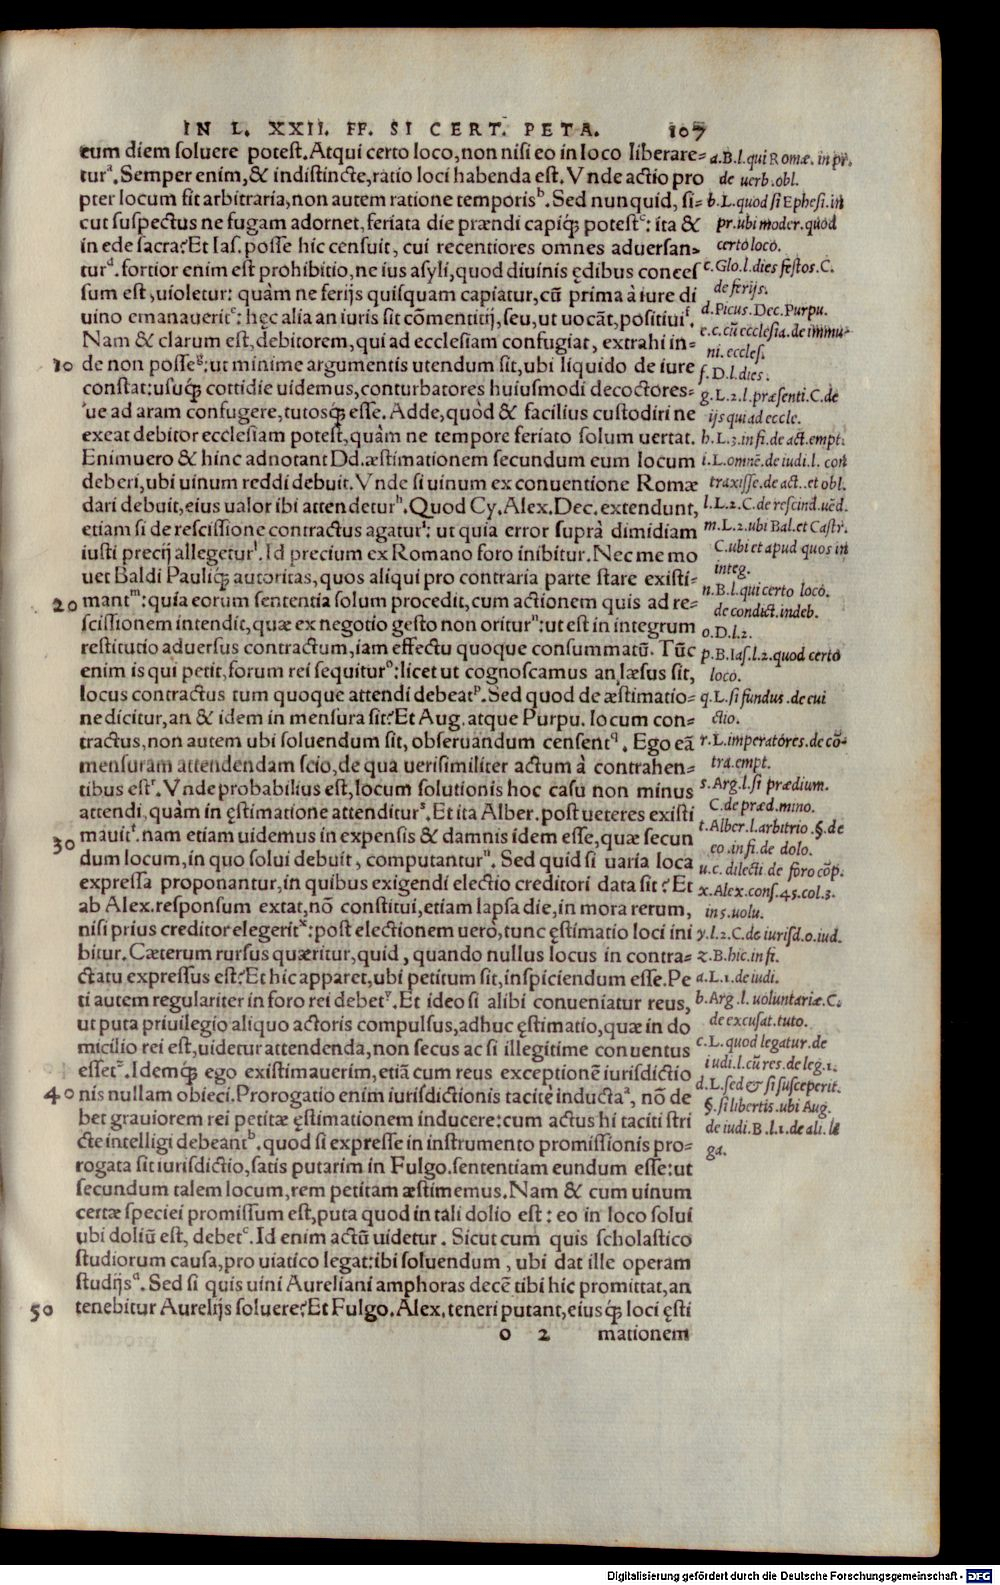 IN L. XXII. FF. SI CERT. PETA. 107
eum diem soluere potest. Atqui certo loco, non nisi eo in loco liberare=
turᵃ. Semper enim, & indistincte, ratio loci habenda est. Vnde actio pro
pter locum fit arbitraria, non autem ratione temporisᵇ. Sed nunquid, si=
cut suspectus ne fugam adornet, feriata die prændi capiq́ue potestᶜ: ita &
in ede sacra? Et Ias. posse hic censuit, cui recentiores omnes aduersan=
turᵈ. fortior enim est prohibitio, ne ius asyli, quod diuinis ędibus conces
sum est, uioletur: quàm ne ferijs quisquam capiatur, cũ prima à iure di
uino emanaueritᵉ: hęc alia an iuris sit cõmentitij, seu, ut uocãt, positiuiᶠ.
Nam & clarum est, debitorem, qui ad ecclesiam confugiat, extrahi in=
10 de non posseᵍ: ut minime argumentis utendum sit, ubi liquido de iure
constat: usuq́ue cottidie uidemus, conturbatores huiusmodi decoctores=
ue ad aram confugere, tutosq́ue esse. Adde, quòd & facilius custodiri ne
exeat debitor ecclesiam potest, quàm ne tempore feriato solum uertat.
Enimuero & hinc adnotant Dd. æstimationem secundum eum locum
deberi, ubi uinum reddi debuit. Vnde si uinum ex conuentione Romæ
dari debuit, eius ualor ibi attendeturʰ. Quod Cy. Alex. Dec. extendunt,
etiam si de rescissione contractus agaturⁱ: ut quia error suprà dimidiam
iusti precij allegeturˡ. Id precium ex Romano foro inibitur. Nec me mo
uet Baldi Pauliq́ue autoritas, quos aliqui pro contraria parte stare existi=
20 mantᵐ: quia eorum sententia solum procedit, cum actionem quis ad re=
scissionem intendit, quæ ex negotio gesto non oriturⁿ: ut est in integrum
restitutio aduersus contractum, iam effectu quoque consummatũ. Tũc
enim is qui petit, forum rei sequiturᵒ: licet ut cognoscamus an læsus sit,
locus contractus tum quoque attendi debeatᵖ. Sed quod de æstimatio=
ne dicitur, an & idem in mensura sit? Et Aug. atque Purpu. locum con=
tractus, non autem ubi soluendum sit, obseruandum censentq. Ego eã
mensuram attendendam scio, de qua uerisimiliter actum à contrahen=
tibus estʳ. Vnde probabilius est, locum solutionis hoc casu non minus
attendi, quàm in ęstimatione attenditurˢ. Et ita Alber. post ueteres existi
30 mauitᵗ. nam etiam uidemus in expensis & damnis idem esse, quæ secun
dum locum, in quo solui debuit, computanturᵘ. Sed quid si uaria loca
expressa proponantur, in quibus exigendi electio creditori data sit? Et
ab Alex. responsum extat, nõ constitui, etiam lapsa die, in mora rerum,
nisi prius creditor elegeritˣ: post electionem uerò, tunc ęstimatio loci ini
bitur. Cæterum rursus quæritur, quid, quando nullus locus in contra=
ctatu expressus est? Et hic apparet, ubi petitum sit, inspiciendum esse. Pe
ti autem regulariter in foro rei debetʸ. Et ideo si alibi conueniatur reus,
ut puta priuilegio aliquo actoris compulsus, adhuc ęstimatio, quæ in do
micilio rei est, uidetur attendenda, non secus ac si illegitime conuentus
essetᶻ. Idemq́ue ego existimauerim, etiã cum reus exceptionẽ iurisdictio
40 nis nullam obieci. Prorogatio enim iurisdictionis tacitè inductaᵃ, nõ de
bet grauiorem rei petitæ ęstimationem inducere: cum actus hi taciti stri
cte intelligi debeantᵇ. quod si expresse in instrumento promissionis pro=
rogata sit iurisdictio, satis putarim in Fulgo. sententiam eundum esse: ut
secundum talem locum, rem petitam æstimemus. Nam & cum uinum
certæ speciei promissum est, puta quod in tali dolio est: eo in loco solui
ubi doliũ est, debetᶜ. Id enim actũ uidetur. Sicut cum quis scholastico
studiorum causa, pro uiatico legat: ibi soluendum, ubi dat ille operam
studijsᵈ. Sed si quis uini Aureliani amphoras decẽ tibi hic promittat, an
50 tenebitur Aurelijs soluere? Et Fulgo. Alex. teneri putant, eiusq́ue loci ęsti
o 2 mationem
a. B. l. qui Romæ. in pr.
de uerb. obl.
b. L. quod si Ephesi. in
pr. ubi moder. quòd
certo loco.
c. Glo. l. dies festos. C.
de ferijs.
d. Picus. Dec. Purpu.
e. c. cũ ecclesia. de immu=
ni. eccles.
f. D. l. dies.
g. L. 2. l. præsenti. C. de
ijs qui ad eccle.
h. L. 3. in fi. de act. empt.
i. L. omnẽ. de iudi. l. con
traxisse. de act. et obl.
l. L. 2. C. de rescind. uẽd.
m. L. 2. ubi Bal. et Castr.
C. ubi et apud quos in
integ.
n. B. l. qui certo loco.
de condict. indeb.
o. D. l. 2.
p. B. Ias. l. 2. quod certo
loco.
q. L. si fundus. de eui
ctio.
r. L. imperatores. de cõ=
tra. empt.
s. Arg. l. si prædium.
C. de præd. mino.
t. Alber. l. arbitrio. §. de
eo. in fi. de dolo.
u. c. dilecti. de foro cõp.
x. Alex. cons. 45. col. 3.
in 5. uolu.
y. l. 2. C. de iurisd. o. iud.
z. B. hic. in fi.
a. L. 1. de iudi.
b. Arg. l. uoluntariæ. C.
de excusat. tuto.
c. L. quod legatur. de
iudi. l. cũ res. de leg. 1.
d. L. sed & si susceperit.
§. si libertis. ubi Aug.
de iudi. B. l. 1. de ali. le
ga.
Digitalisierung gefördert durch die Deutsche Forschungsgemeinschaft - DFG